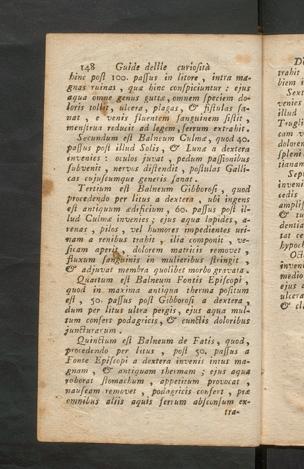 148 Guide dellle curiosità
hinc post 100. passus in litore, intra ma-
gnas ruinas, quæ hinc conspiciuntur: ejus
aqua omne genus guttæ, omnem speciem do-
loris tollit, ulcera, plagas, & fistulas sa-
nat, e venis fluentem sanguinem sistit,
menstrua reducit ad legem, ferrum extrahit.
Secundum est Balneum Culmæ, quod 40.
passus post illud Solis, & Lunæ a dextera
invenies: oculos juvat, pedum passionibus
subvenit, nervos distendit, postulas Galli-
cas cujuscumque generis sanat.
Tertium est Balneum Gibborosi, quod
procedendo per litus a dextera, ubi ingens
est antiquum ædificium, 60. passus post il-
lud Culmæ invenies: ejus aqua lapides, a-
renas, pilos, vel humores impedientes uri-
nam a renibus trahit, ilia componit, ve-
sicam aperit, dolorem matricis removet,
fluxum sanguinis in mulieribus stringit,
& adjuvat membra quolibet morbo gravata.
Quartum est Balneum Fontis Episcopi,
quod in maxima antiqua therma positum
est, 50. passus post Gibborosi a dextera,
dum per litus ultra pergis, ejus aqua mul-
tum confert podagricis, & cunctis doloribus
juncturarum.
Quinctium est Balneum de Fatis, quod,
procedendo per litus, post 50. passus a
Fonte Episcopi a dextera invenis intus ma-
gnam, & antiquam thermam; ejus aqua
roborat stomachum, appetitum provocat,
nauseam removet, podagricis confert, præ
omnibus aliis aquis ferrum absconsum ex-
tra-
trahit
biem i
Sext
invenies
illud
Trugli
cam v
dolorem
spleni
tianam
Sep
inveni
cedis
amplis
& tu
dentia
tat ce
hypoch
Oct
inveni
medio
ejus a
ulcera
& cla